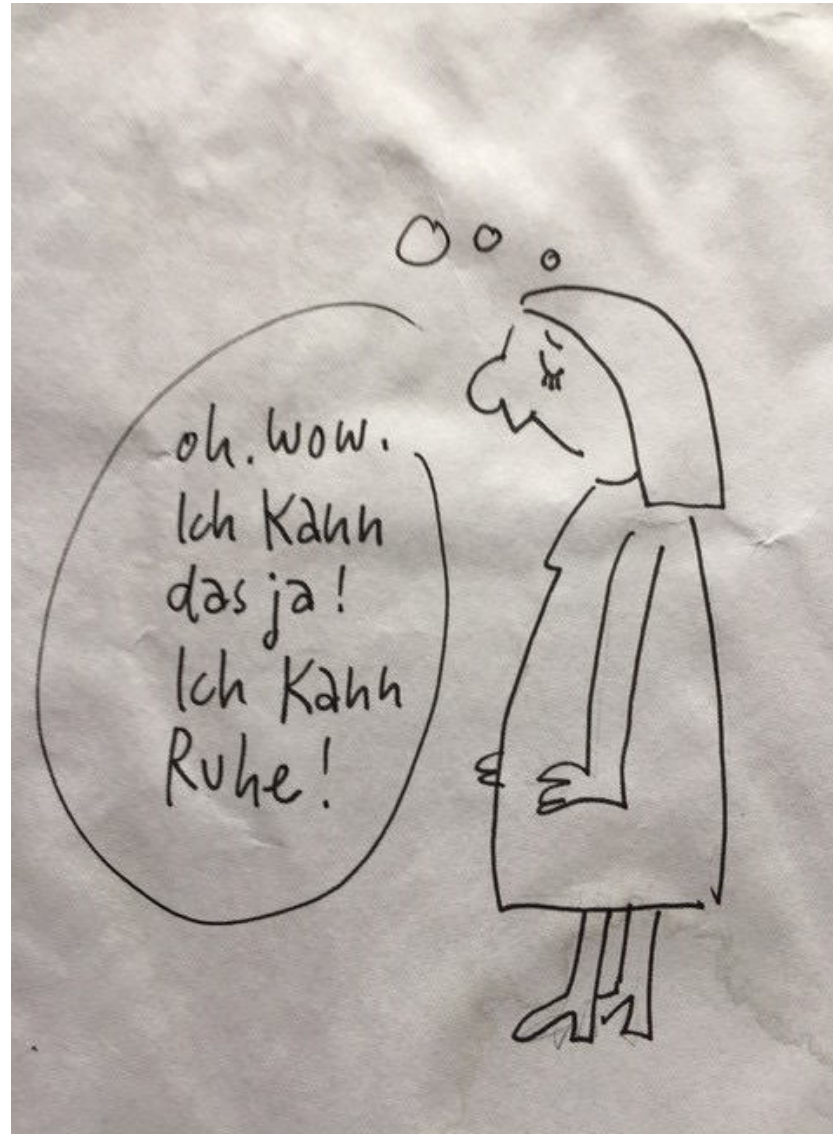 oh. wow.
Ich kann
das ja!
Ich kann
Ruhe!